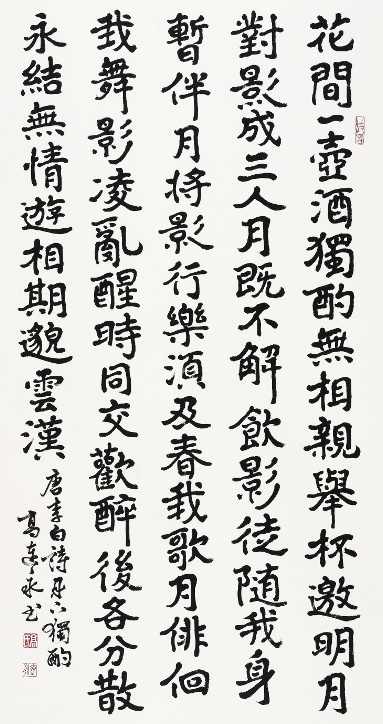 花間一壺酒獨酌無相親舉杯邀明月
對影成三人月既不解飲影徒隨我身
暫伴月將影行樂須及春我歌月徘徊
我舞影凌亂醒時同交歡醉後各分散
永結無情遊相期邈雲漢
唐李白詩月下獨酌